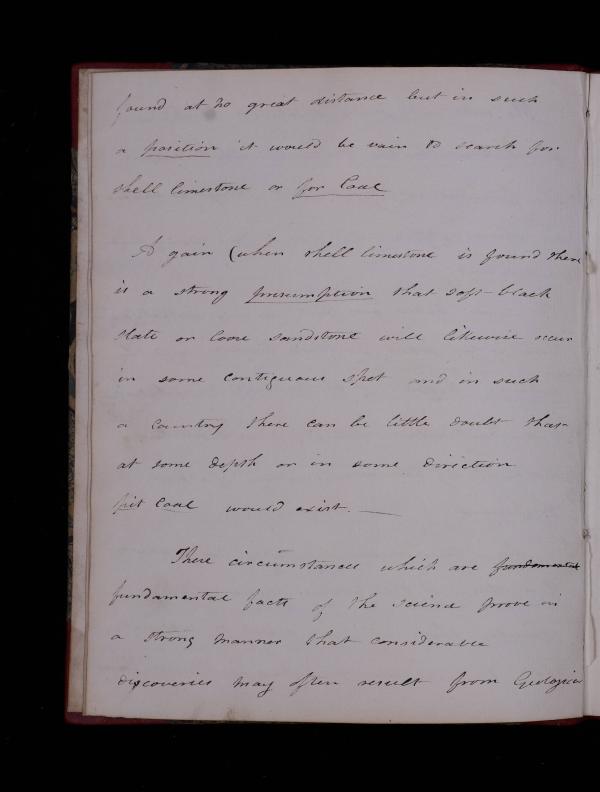 found at no great distance but in such
a position it would be vain to search for
shell limestone or for Coal
Again (when shell limestone is found there
is a strong presumption that soft black
slate or loose sandstone will likewise occur
in some contiguous spot and in such
a country there can be little doubt that
at some depth or in some direction
pit Coal would exist. —
These circumstances which are fundamental
fundamental facts of the science prove in
a strong manner that considerable
discoveries may often result from Geological